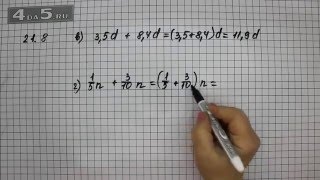 4DA5.RU
21.8 в) 3,5d + 8,4d = (3,5+8,4)d = 11,9d
г) 1/5 n + 3/10 n = (1/5 + 3/10) n =